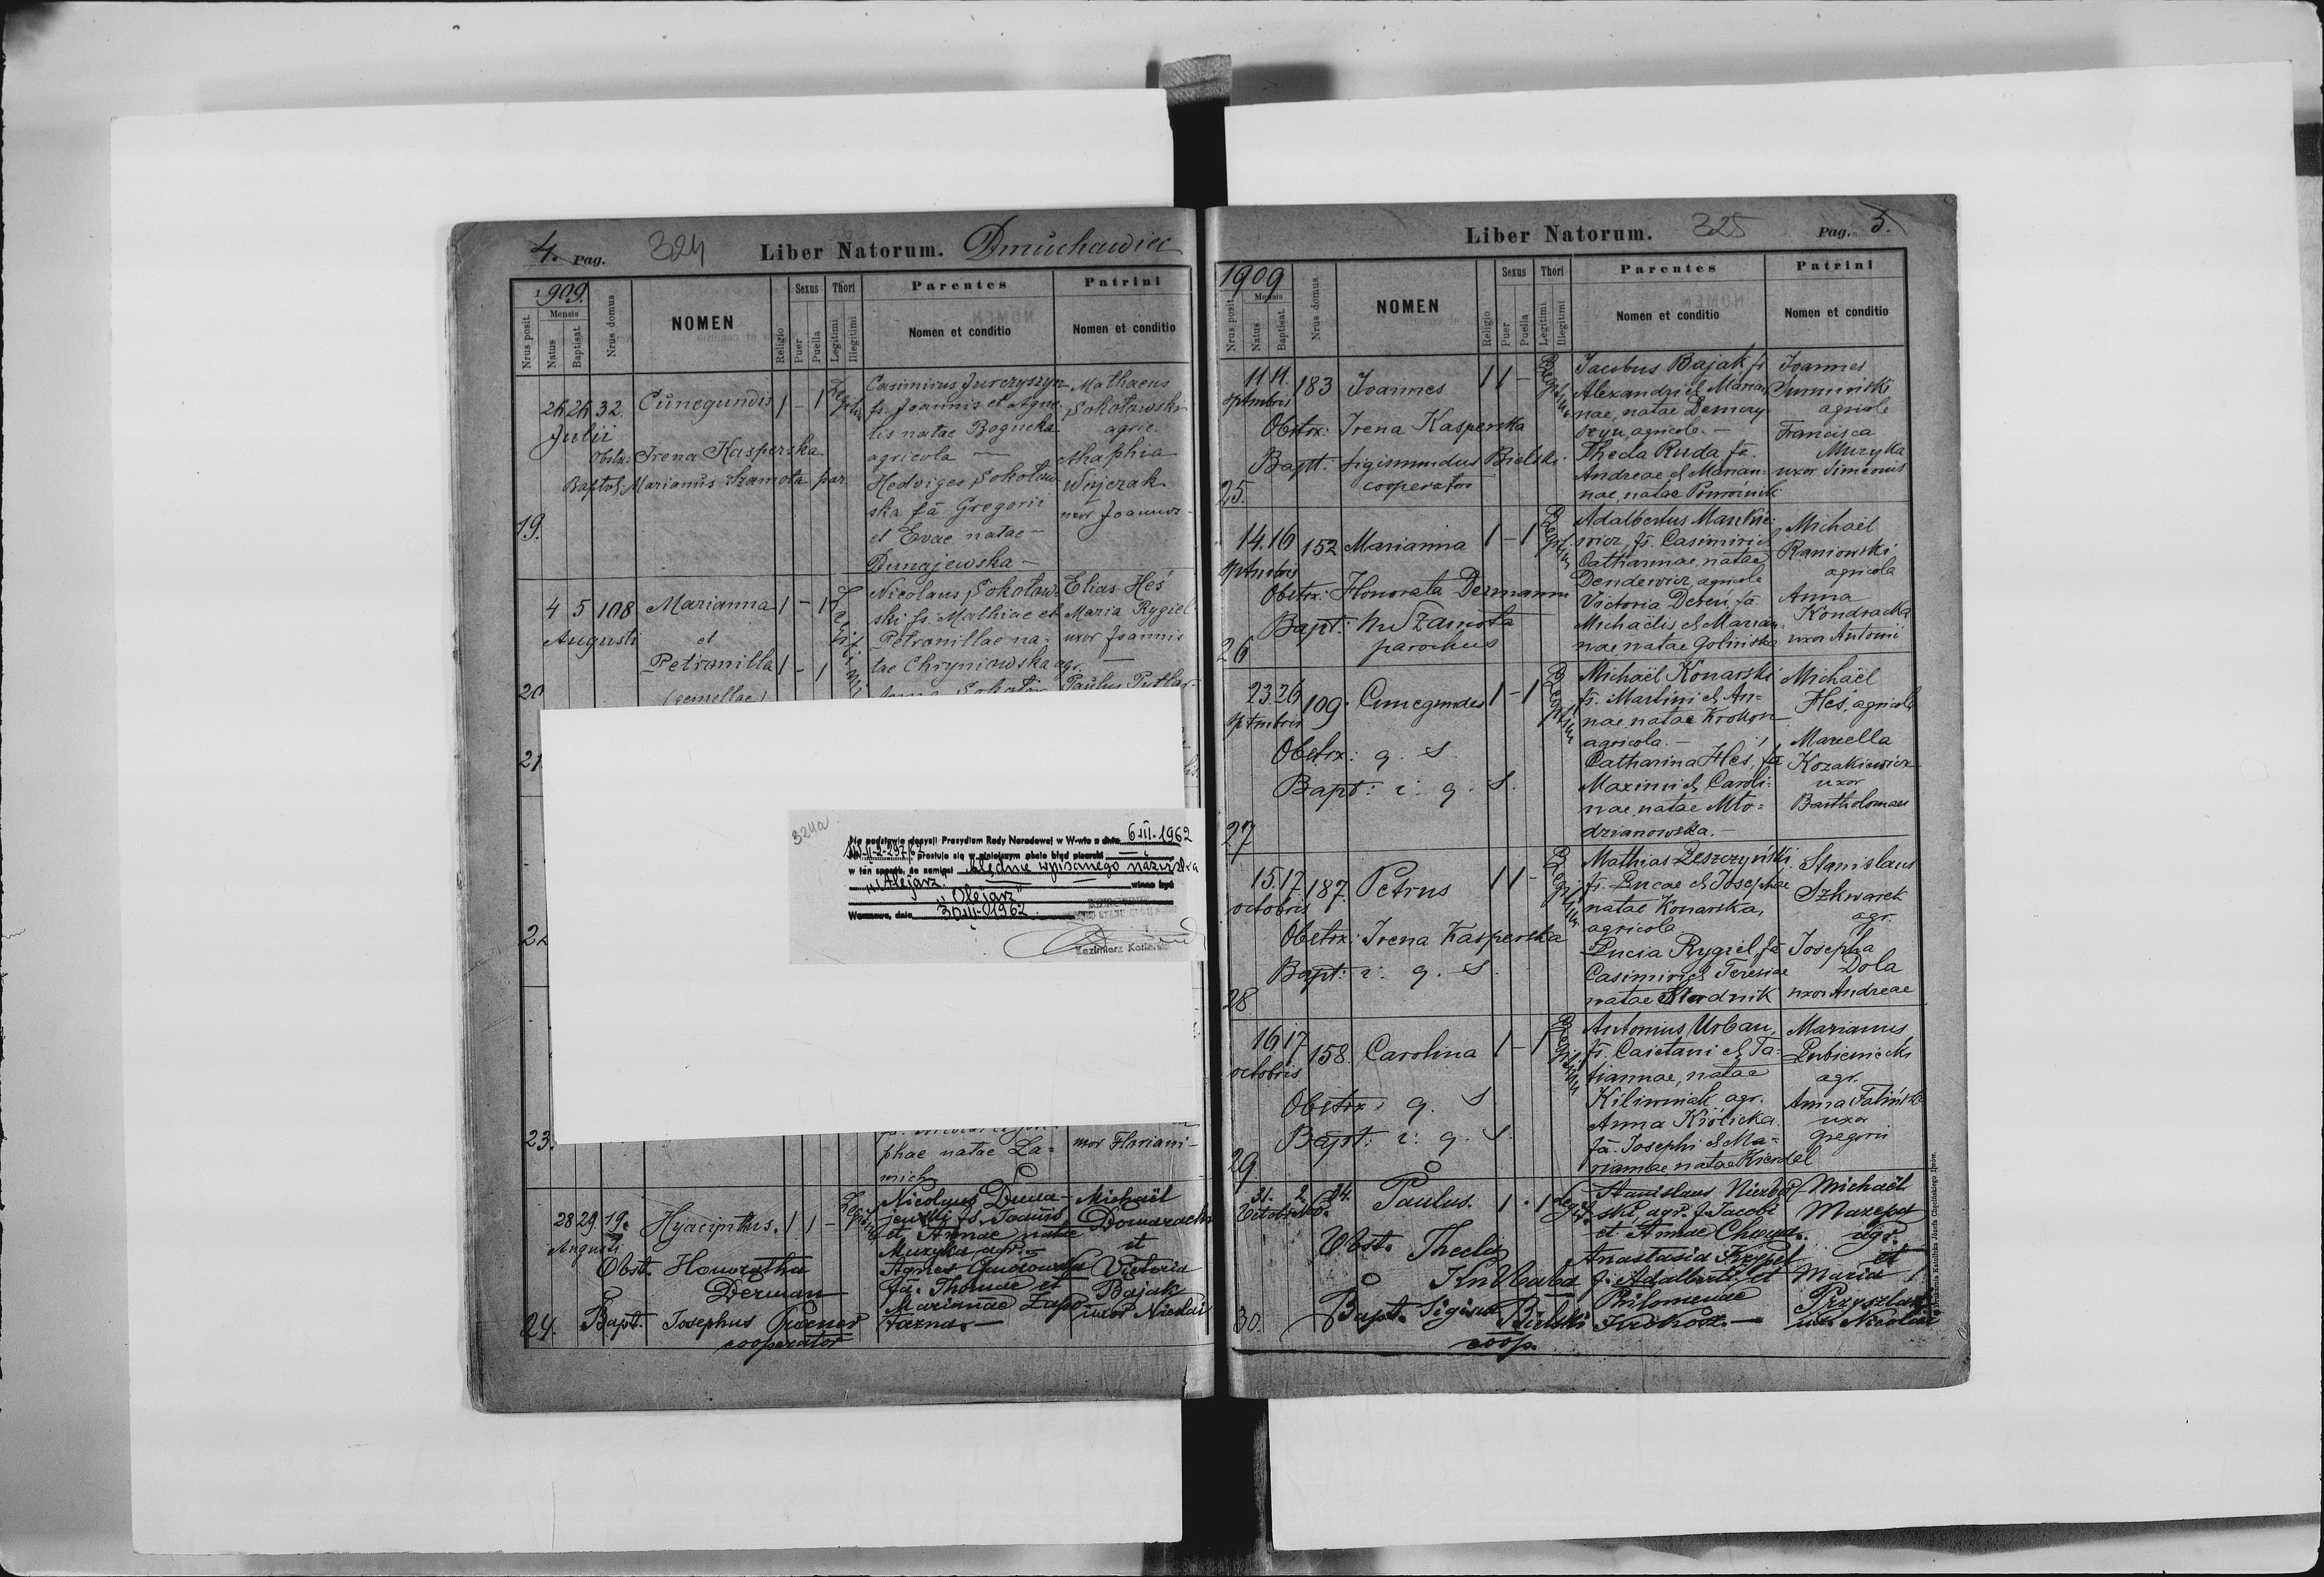 4. Pag. 324 Liber Natorum. Dmuchawiec
1909.
Nrus posit.
Mensis
Natus
Baptisat.
Nrus domus
NOMEN
Religio
Sexus
Puer
Puella
Thori
Legitimi
Illegitimi
Parentes
Nomen et conditio
Patrini
Nomen et conditio
26 26 32. Cunegundis 1 - 1
Julii
Obstx: Irena Kasperska
Marianus Szamota par.
19.
Casimirus Jurczyszyn
fs. Joannis et Agne-
tis natae Bogucka
agricola —
Hedviges Sokołow-
ska fa Gregorii
et Evae natae —
Dunajewska —
Mathaeus
Sokołowski
agric.
uxor Joannis
4 5 108 Marianna 1 - 1
Augusti et
Petronilla 1 - 1
(gemellae)
20
Nicolaus Sokołow-
ski fs. Mathiae et
Petronillae na-
tae Chryniowska agr.
Elias Heś
Maria Rygiel
uxor Joannis —
Paulus
21.
22
324a
Na podstawie decyzji Prezydium Rady Narodowej w W-wie z dnia 6 III-1962
prostuje się w niniejszym akcie błąd pisarski
w ten sposób, że zamiast błędnie wpisanego nazwiska
"Alejarz" winno być
"Olejarz"
Warszawa, dnia 30 III 1962
Kazimierz
23.
phae natae La-
mich
uxor Floriani —
28 29. 19. Hyacinthus. 1 1 -
Augusti
Obst. Honoratha
Derman
24. Bapt. Josephus
cooperator
Nicolaus Duna-
jewski fs. Joannis
et Annae natae
Muzyka agr.
Agnes
fa. Thomae et
Mariannae Zapo-
tazna. —
Michaël
et
Victoria
Bajak
uxor Nicolai
Liber Natorum. 325 Pag. 5.
1909
Nrus posit.
Mensis
Natus
Baptisat.
Nrus domus
NOMEN
Religio
Sexus
Puer
Puella
Thori
Legitimi
Illegitimi
Parentes
Nomen et conditio
Patrini
Nomen et conditio
11 11. 183 Joannes 1 1 -
Obstx: Irena Kasperska
Bapt: Sigismundus Bielski
cooperator
25.
Jacobus Bajak fs
Alexandri et Marian-
nae, natae Demczy-
szyn, agricola. —
Thecla Ruda fa.
Andreae et Marian-
nae, natae Pomirnik
Joannes
agricola
Francisca
Muzyka
uxor Simeonis
14. 16 152 Marianna 1 - 1
Obstx: Honorata Dermann
Bapt: Szamota
parochus
26
Adalbertus Mankie-
wicz, fs. Casimiri et
Catharinae, natae
Dendewicz, agricola
Victoria Dereń, fa.
Michaëlis et Marian-
nae, natae Golińska
Michaël
Raniowski
agricola
Anna
Kondracka
uxor Antonii
23. 26 109. Cunegundes 1 - 1
Obstx: q. S
Bapt: i. q. S.
27
Michaël Konarski
fs. Martini et An-
nae, natae Krokosz
agricola. —
Catharina Heś, fa
Maximi et Caroli-
nae, natae Mło-
dzianowska. —
Michaël
Heś, agricola
Marcella
Kozakiewicz
uxor
Bartholomaei
15. 17. 187. Petrus 1 1 -
octobris
Obstx: Irena Kasperska
Bapt: i. q. S.
28.
Mathias Leszczyński,
fs. Lucae et Josephae
natae Konarska,
agricola
Lucia Rygiel, fa
Casimiri et Teresiae
natae Mordnik
Stanislaus
Szkwarek
agr.
Josepha
Dola
uxor Andreae
16 17 158. Carolina 1 - 1
octobris
Obstx: q. S
Bapt: i. q. S.
29.
Antonius Urban,
fs. Caietani et Ta-
tiannae, natae
Kilimniak agr.
Anna Królicka
fa. Josephi et Ma-
riannae natae Kierdal
Marianus
Lubieniecki
agr.
Anna Falińska
uxor
Gregorii
31. 2. 24. Paulus. 1 . 1
Octobris
Obst. Thecla
Bapt. Sigism Bielski
coop.
30.
Stanislaus
ski agr. f. Jacobi
et Annae
Anastasia Krzypel
f. Adalberti et
Philomenae
Krokosz. —
Michaël
Mazepa
agr.
et
Maria
ux. Nicolai